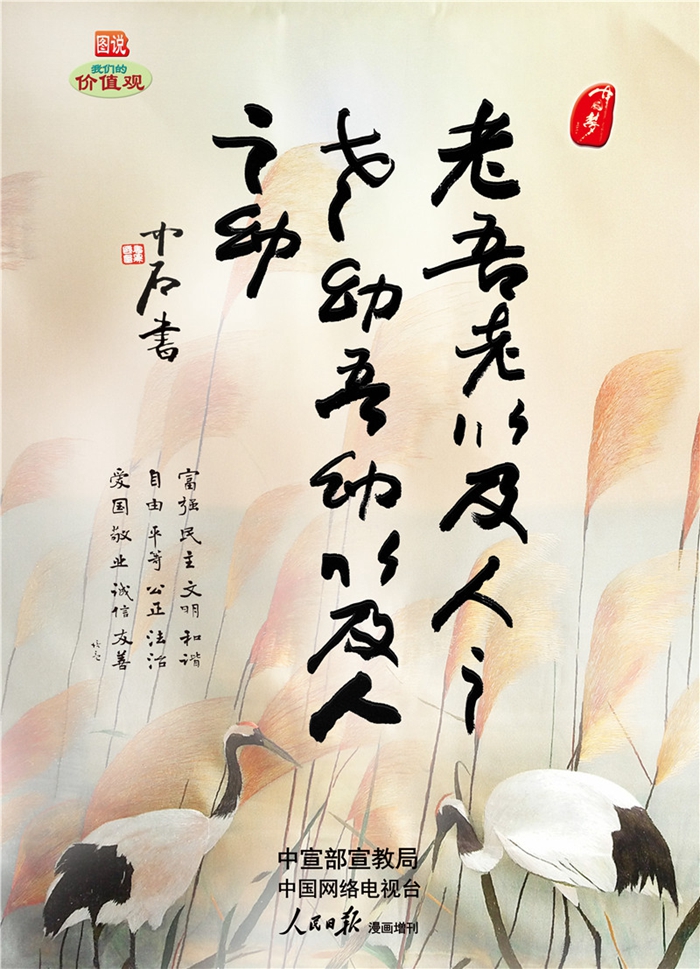 图说
我们的
价值观
中国梦
老吾老以及人之
老幼吾幼以及人
之幼
中石书
富强民主文明和谐
自由平等公正法治
爱国敬业诚信友善
中宣部宣教局
中国网络电视台
人民日报 漫画增刊